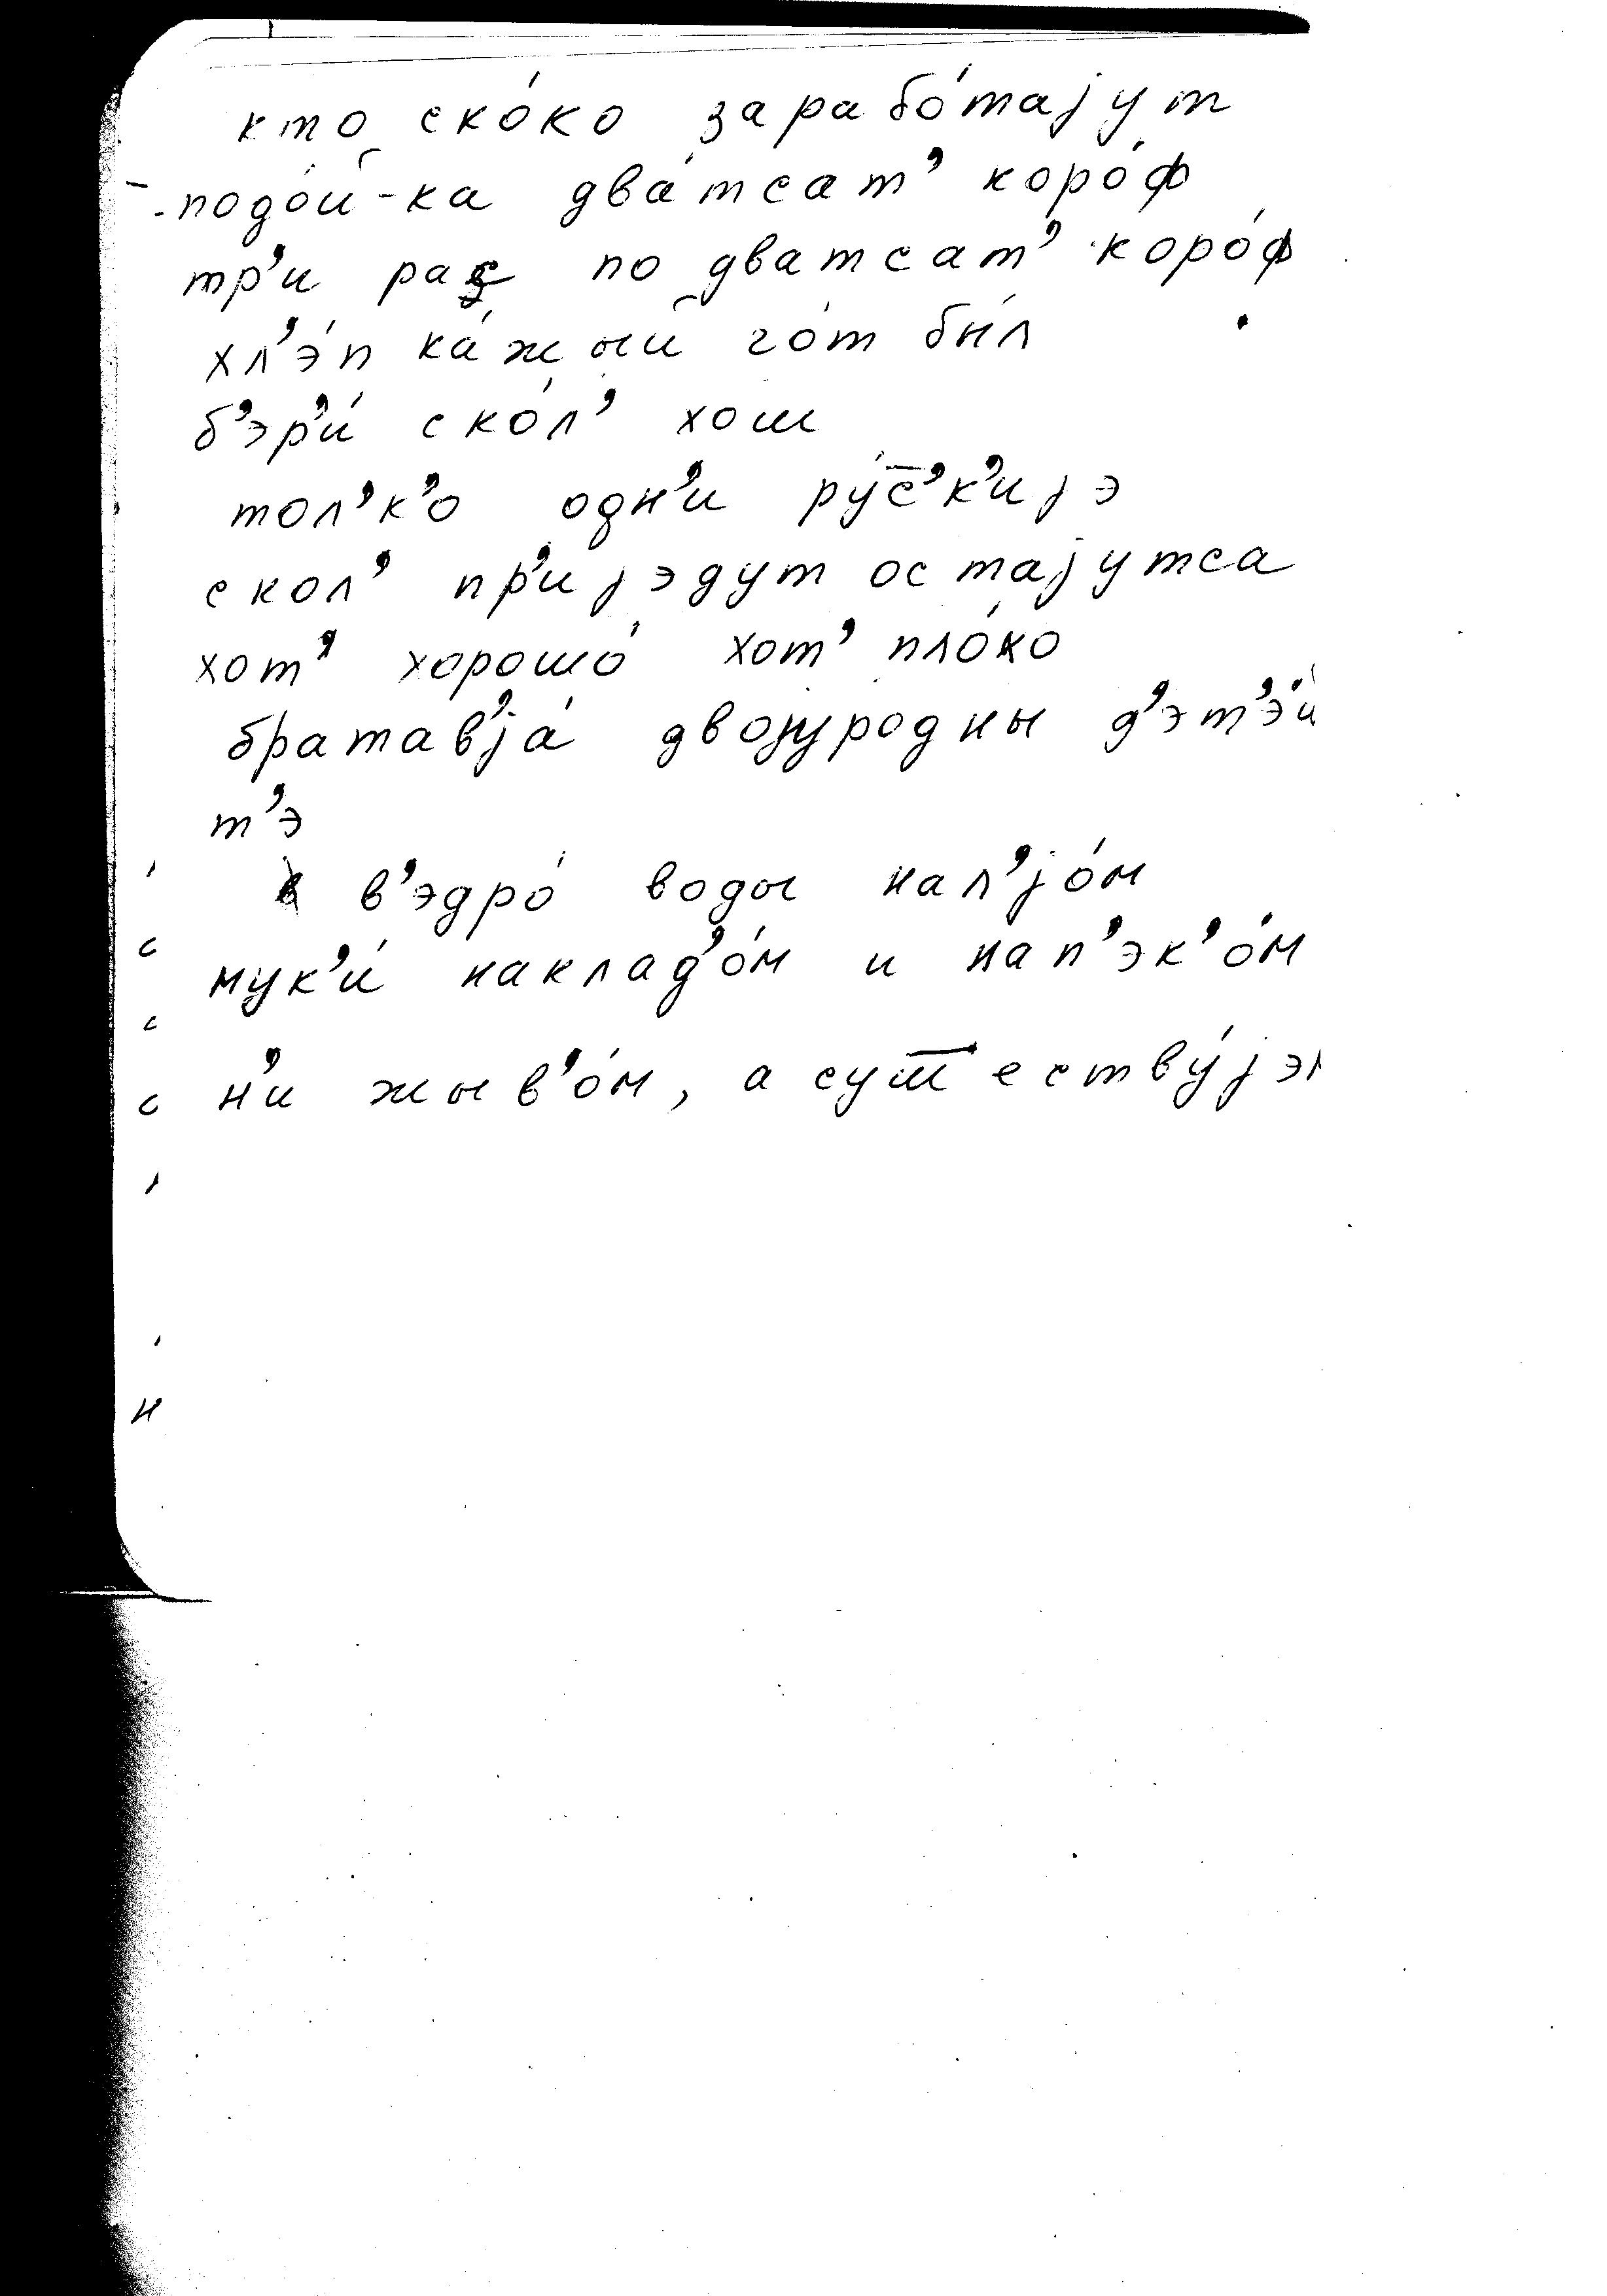 кто ско́ко зарабо́тајут
подо́й-ка два́тсат' коро́ф
тр'и рас по дватсат' коро́ф
хл'э́п ка́жый го́т бы́л
б'эр'и́ ско́л' хош
тол'к'о одн'и ру́с̄'к'ијэ
скол' пр'ијэдут остајутса
хот' хорошо́ хот' пло́хо
братав'jа́ двојуродны д'эт'э́й
т'э
в'эдро́ воды нал'јо́м
мук'и́ наклад'о́м и нап'эк'о́м
н'и жыв'о́м, а суш̄ествујэм